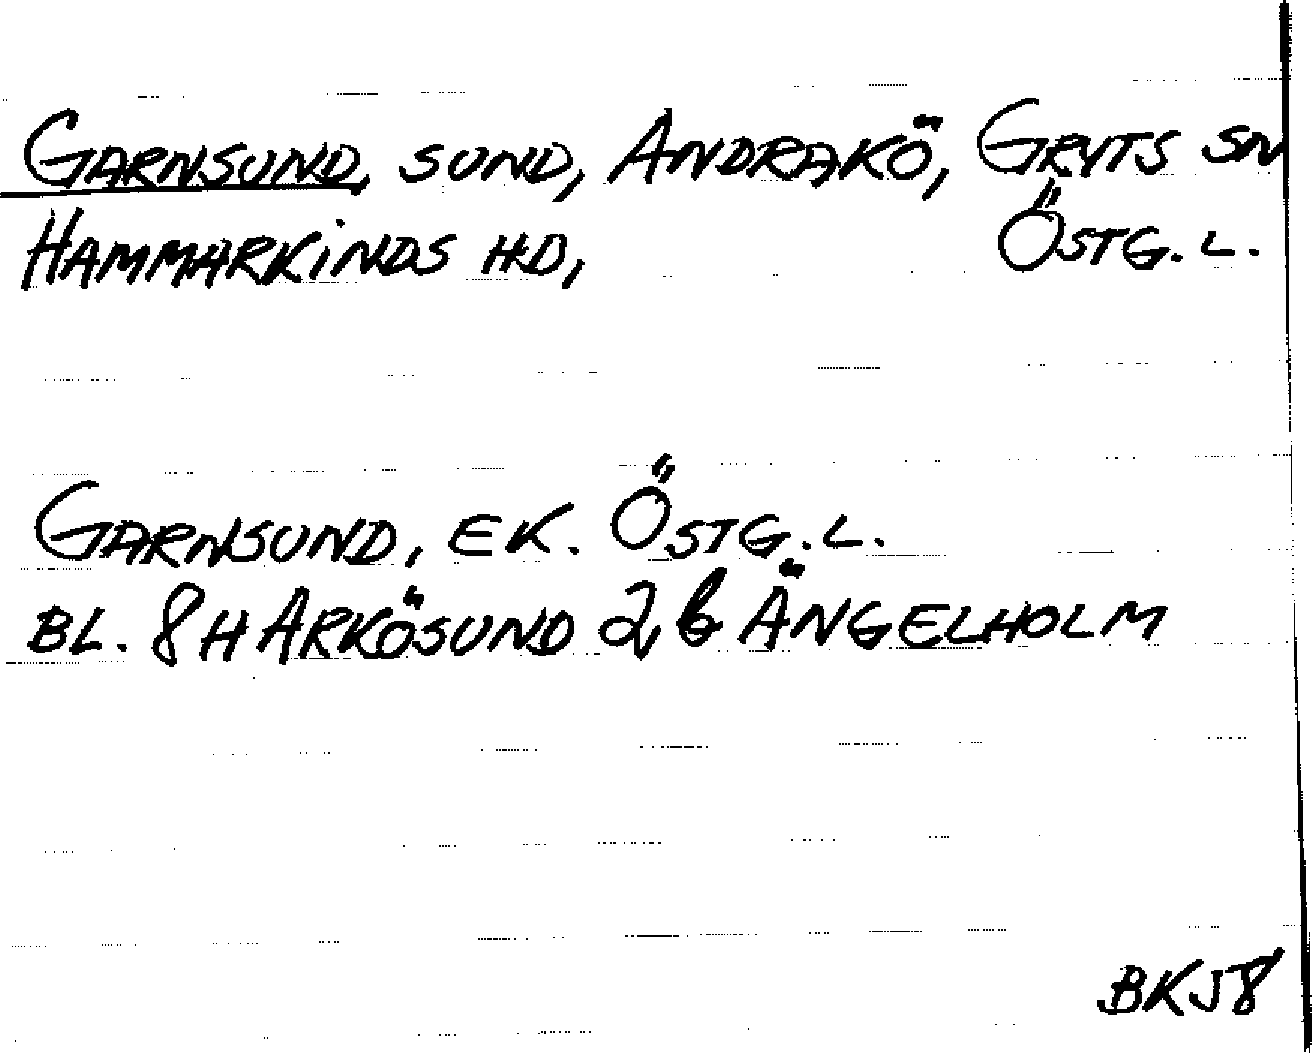 GARNSUND, SUND, ANDRAKÖ, GRYTS SN
HAMMARKINDS HD, ÖSTG. L.
GARNSUND, EK. ÖSTG. L.
BL. 8 H ARKÖSUND 2 b ÄNGELHOLM
BKJ8